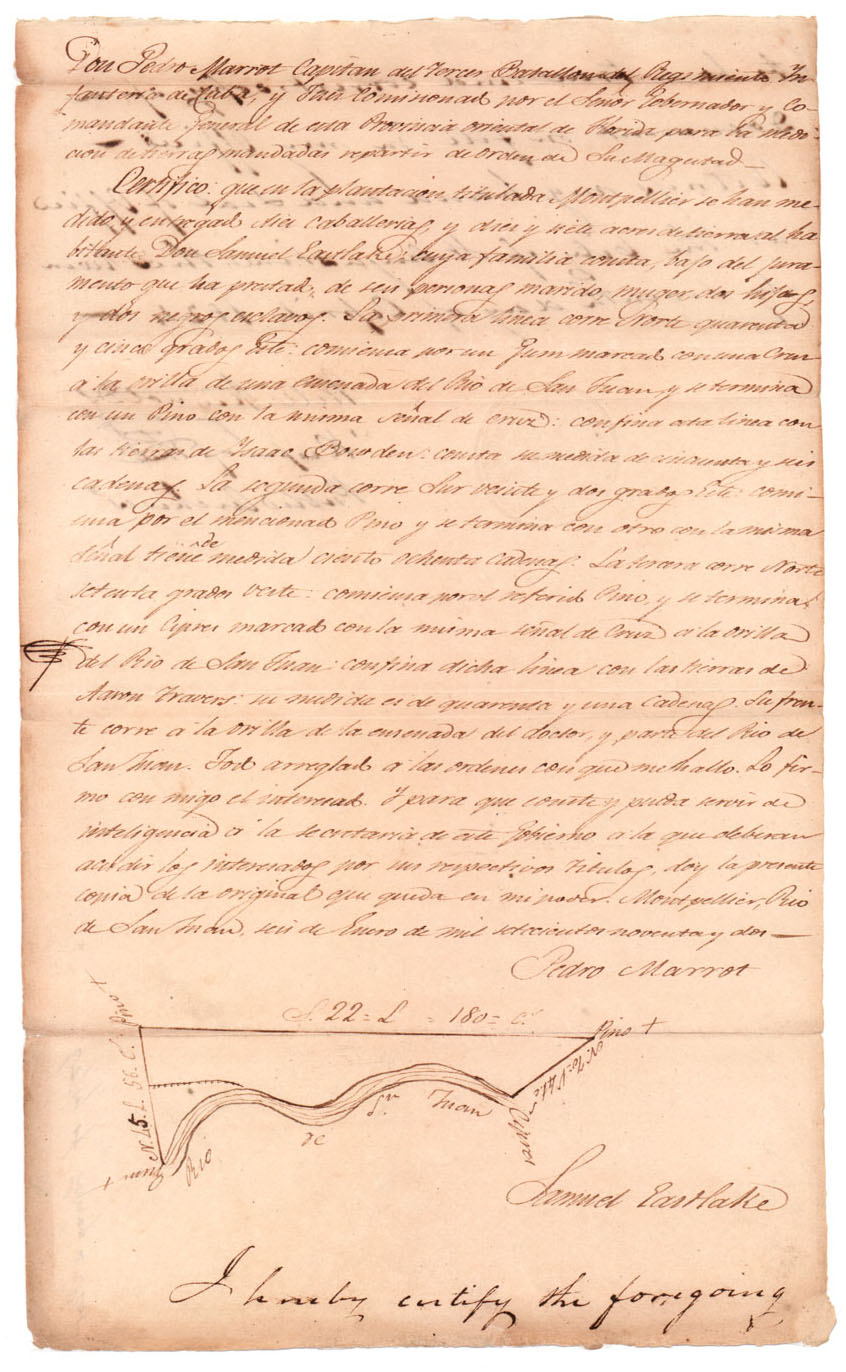 Don Pedro Marrot Capitan del Tercer Batallon del Regimiento In-
fanteria de Cuba, y Juez Comisionad por el Señor Gobernador y Co-
mandante General de esta Provincia oriental de Florida para la medi-
cion de tierras mandadas repartir de orden de Su Magestad—
Certifico: que en la plantacion titulada Montpellier se han me-
dido y entregad diez caballerias y diez y siete acres de tierra al ha-
bitante Don Samuel Eastlake: cuya familia consta, bajo del jura-
mento que ha prestad, de seis personas marido, muger, dos hijas,
y dos negros esclavos. La primera linea corre Norte quarenta
y cinco grados Este: comienza por un Gum marcad con una Cruz
á la orilla de una ensenada del Rio de San Juan y se termina
con un Pino con la misma señal de cruz: confina esta linea con
las tierras de Isaac Bowden: consta su medida de cincuenta y seis
cadenas. La segunda corre Sur veinte y dos grados Este: comi-
enza por el mencionad Pino y se termina con otro con la misma
señal tiene de medida ciento ochenta cadenas. La tercera corre Norte
setenta grados Oeste: comienza por el referid Pino, y se termina
con un Cipres marcad con la misma señal de Cruz á la orilla
del Rio de San Juan: confina dicha linea con las tierras de
Aaron Travers: su medida es de quarenta y una Cadenas. Su fren-
te corre á la orilla de la ensenada del doctor, y parte del Rio de
San Juan. Tod arreglad á las ordenes con que me hallo. Lo fir-
mo con migo el interesad. Y para que conste y pueda servir de
inteligencia á la secretaria de este Gobierno á la que deberan
acudir los interesados por sus respectivos titulos, doy la presente
copia de la original que queda en mi poder. Montpellier, Rio
de San Juan, seis de Enero de mil setecientos noventa y dos—
Pedro Marrot
Pino +
S. 22 = E = 180 = C.s
Pino +
N. 45. E. 56. C.s
Gum +
Rio
de
Sn Juan
Cipres
Samuel Eastlake
I hereby certify the foregoing